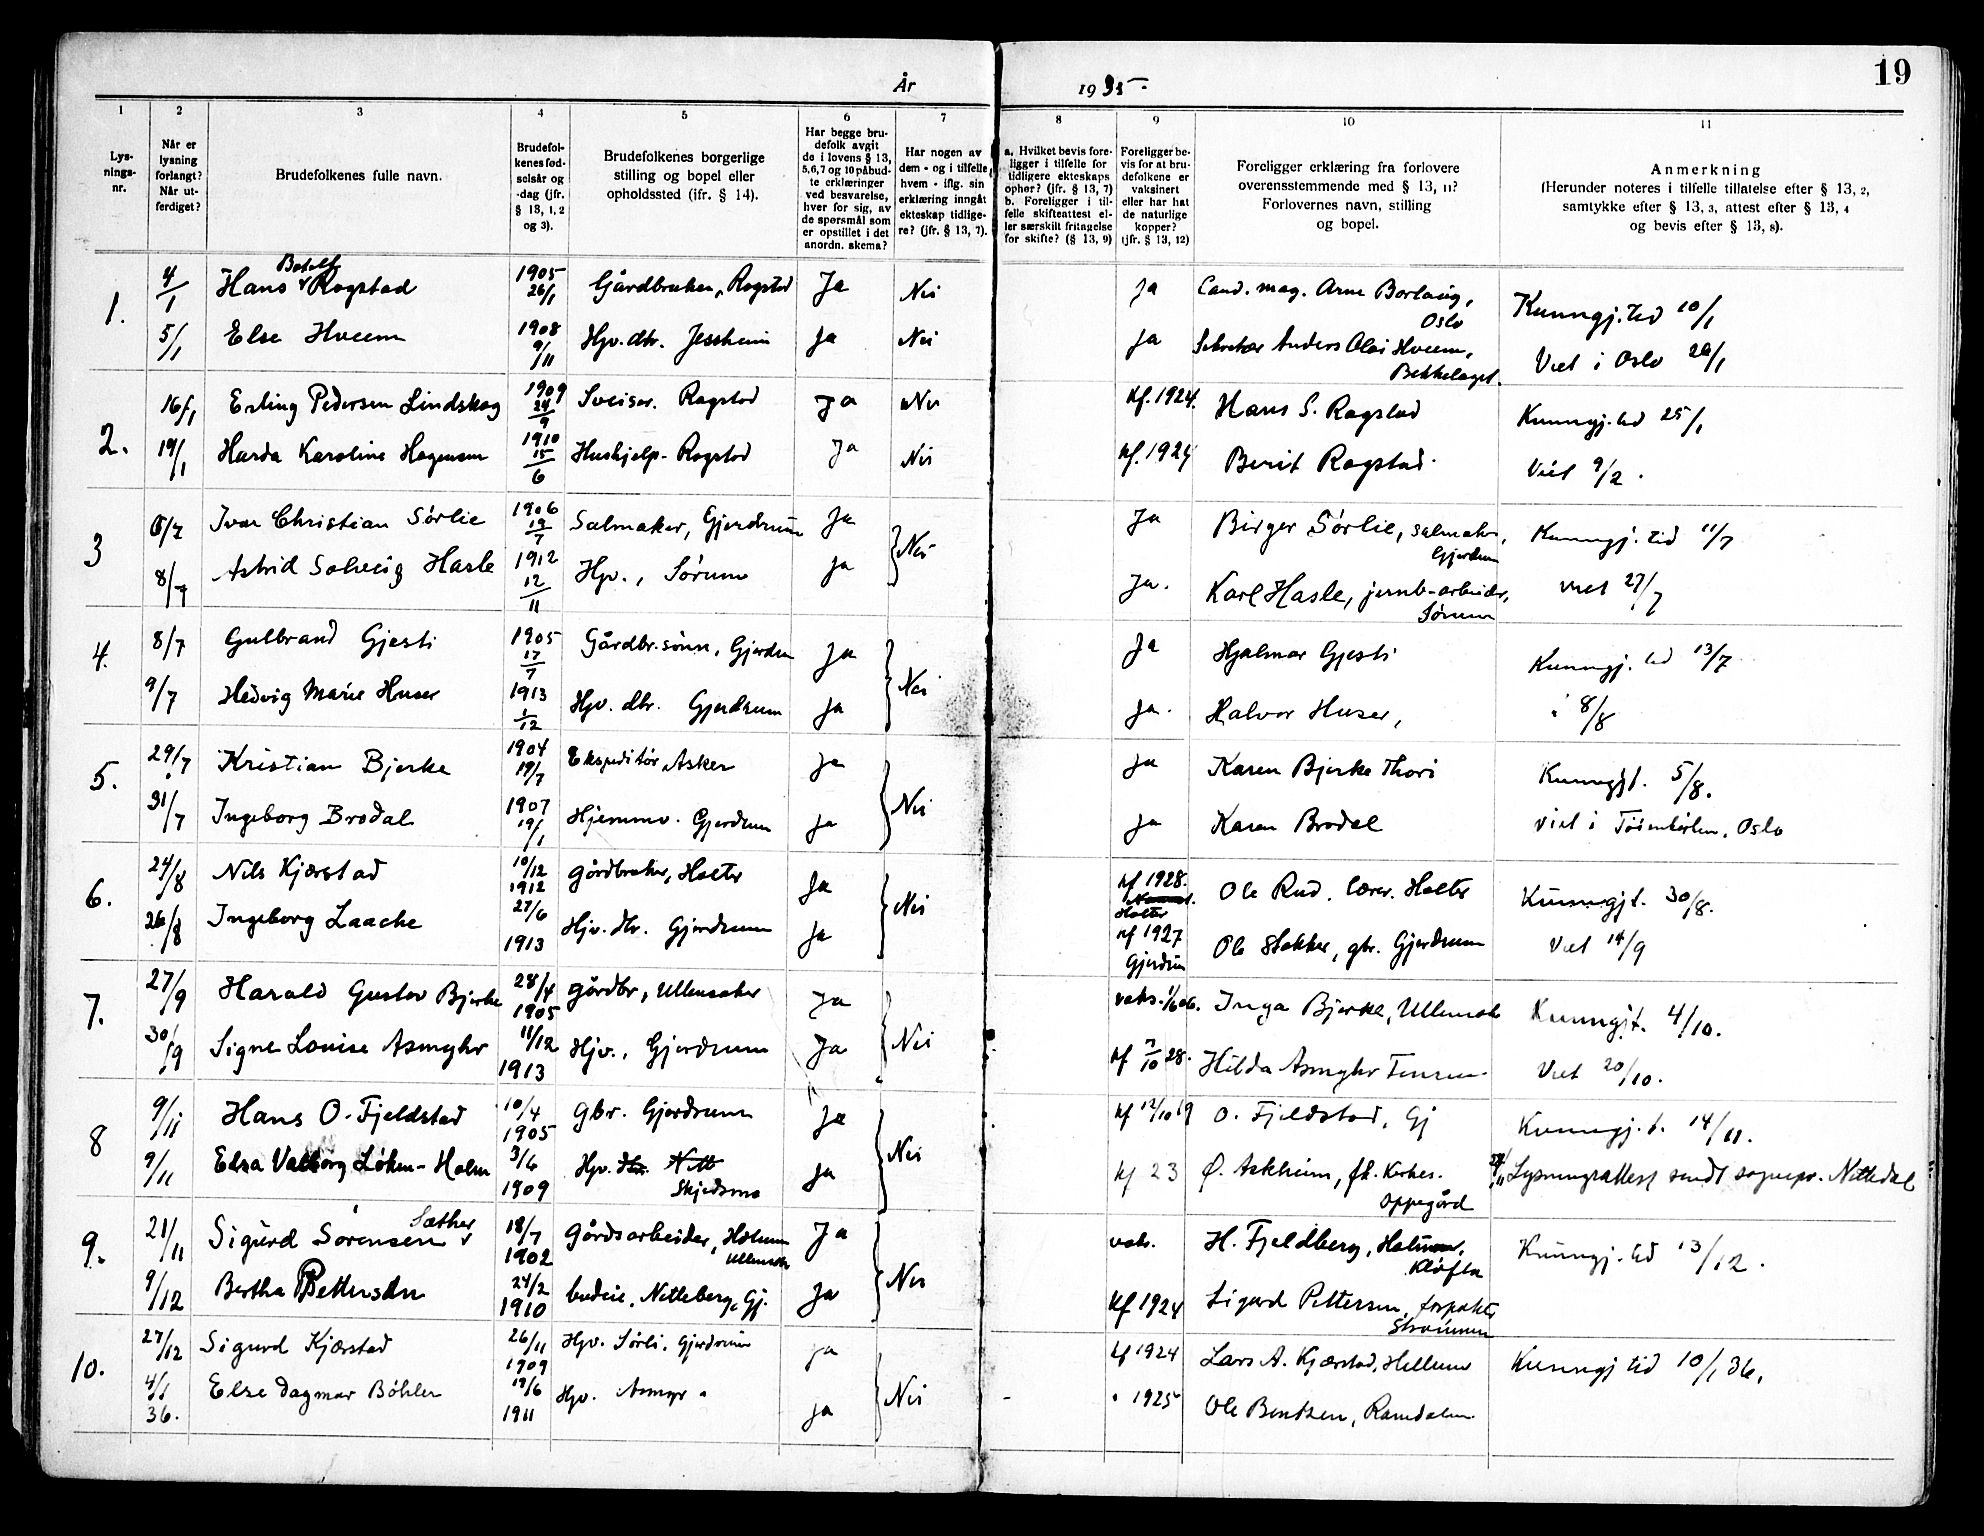 19
År 1935
1
2
3
4
5
6
7
8
9
10
11
Lys-
nings-
nr.
Når er
lysning
forlangt?
Når ut-
ferdiget?
Brudefolkenes fulle navn.
Brudefol-
kenes fød-
selsår og
-dag (jfr.
§ 13, 1, 2
og 3).
Brudefolkenes borgerlige
stilling og bopel eller
opholdssted (ifr. § 14).
Har begge bru-
defolk avgit
de i lovens § 13,
5,6,7 og 10 påbud-
te erklæringer
ved besvarelse,
hver for sig, av
de spørsmål som
er opstillet i det
anordn. skema?
Har nogen av
dem - og i tilfelle
hvem - iflg. sin
erklæring inngått
ekteskap tidlige-
re? (jfr. § 13, 7).
a. Hvilket bevis fore-
ligger i tilfelle for
tidligere ekteskaps
ophør? (jfr. § 13, 7)
b. Foreligger i til-
felle skifteattest el-
ler særskilt fritagelse
for skifte? (§ 13, 9)
Foreligger be-
vis for at bru-
defolkene er
vaksinert
eller har hat
de naturlige
kopper?
(jfr. § 13, 12)
Foreligger erklæring fra forlovere
overensstemmende med § 13, 11?
Forlovernes navn, stilling
og bopel.
Anmerkning
(Herunder noteres i tilfelle tillatelse efter § 13, 2,
samtykke efter § 13, 3, attest efter § 13, 4
og bevis efter § 13, 8).
1. 4/1 Hans Botolf Rogstad 1905 26/1 Gårdbruker, Rogstad Ja Nei Ja Cand. mag. Arne Borlaug, Oslo Kunngj. tid 10/1
5/1 Else Hveem 1908 9/11 Hjv. dtr. Jessheim Ja Nei Ja Sekretær Anders Olai Hveem, Bekkelaget. Viet i Oslo 26/1
2. 16/1 Erling Pedersen Lindskog 1909 24/9 Sveiser. Rogstad Ja Nei Kf. 1924. Hans S. Rogstad Kunngj. tid 25/1
19/1 Harda Karoline Hagensen 1910 15/6 Hushjelp. Rogstad Ja Nei Kf. 1924 Berit Rogstad. Viet 9/2.
3 6/7 Ivar Christian Sörlie 1906 19/7 Salmaker, Gjerdrum Ja Nei Ja Birger Sörlie, salmaker, Gjerdrum Kunngj. tid 11/7
8/7 Astrid Solveig Hasle 1912 12/11 Hjv., Sörum Ja Ja. Karl Hasle, jernb-arbeider, Sörum viet 27/7
4. 8/7 Gulbrand Gjesti 1905 17/7 Gårdbr. sönn, Gjerdrum Ja Nei Ja Hjalmar Gjesti Kunngj. tid 13/7
9/7 Hedvig Marie Huser 1913 1/12 Hjv. dtr. Gjerdrum Ja Ja. Halvor Huser, i 8/8
5. 29/7 Kristian Bjerke 1904 19/7 Ekspeditör, Asker Ja Nei Ja Karen Bjerke Thori Kunngjt. 5/8.
31/7 Ingeborg Brodal 1907 19/1 Hjemmev. Gjerdrum Ja Ja Karen Brodal viet i Töienkirken, Oslo
6. 24/8 Nils Kjærstad 10/12 1912 gårdbruker, Holter Ja Nei Kf 1928. Holter Ole Rud. lærer. Holter Kunngjt. 30/8.
26/8 Ingeborg Laache 27/6 1913 Hjv. dtr. Gjerdrum Ja Kf 1927 Gjerdrum Ole Stokker, gbr. Gjerdrum Viet 14/9
7. 27/9 Harald Gustav Bjerke 28/4 1905 gårdbr, Ullensaker Ja Nei vaks. 1/6 06. Inga Bjerke, Ullensak Kunngjt. 4/10.
30/9 Signe Louise Asmyhr 11/12 1913 Hjv., Gjerdrum Ja Kf 7/10 28. Hilda Asmyhr Viet 20/10.
8 9/11 Hans O. Fjeldstad 10/4 1905 gbr. Gjerdrum Ja Nei Kf 12/10 19 O. Fjeldstad, Gj Kunngj. t. 14/11.
9/11 Elsa Valborg Löken-Holm 3/6 1909 Hjv. dtr. Nitt Skjedsmo Ja Kf 23 Ø. Askheim, fh. Kirkes. Oppegård Lysningsattest sendt sognepr. Nittedal
9. 21/11 Sigurd Sörensen Sæther 18/7 1902 gårdsarbeider, Holum Ullensaker Ja Nei vak. H. Fjeldberg, Holum, Klöfta Kunngj. tid 13/12.
9/12 Bertha Pettersen 24/2 1910 budeie, Nitteberg, Gj. Ja Kf 1924 Sigurd Pettersen, forpakter Strömmen
10. 27/12 Sigurd Kjærstad 26/11 1909 Hjv. Sörli, Gjerdrum Ja Nei Kf 1924 Lars A. Kjærstad, Hellum Kunngj tid 10/1 36.
4/1 36. Else Dagmar Böhler 19/6 1911 Hjv. Asmyr Ja " 1925 Ole Bentzen, Ramdalen